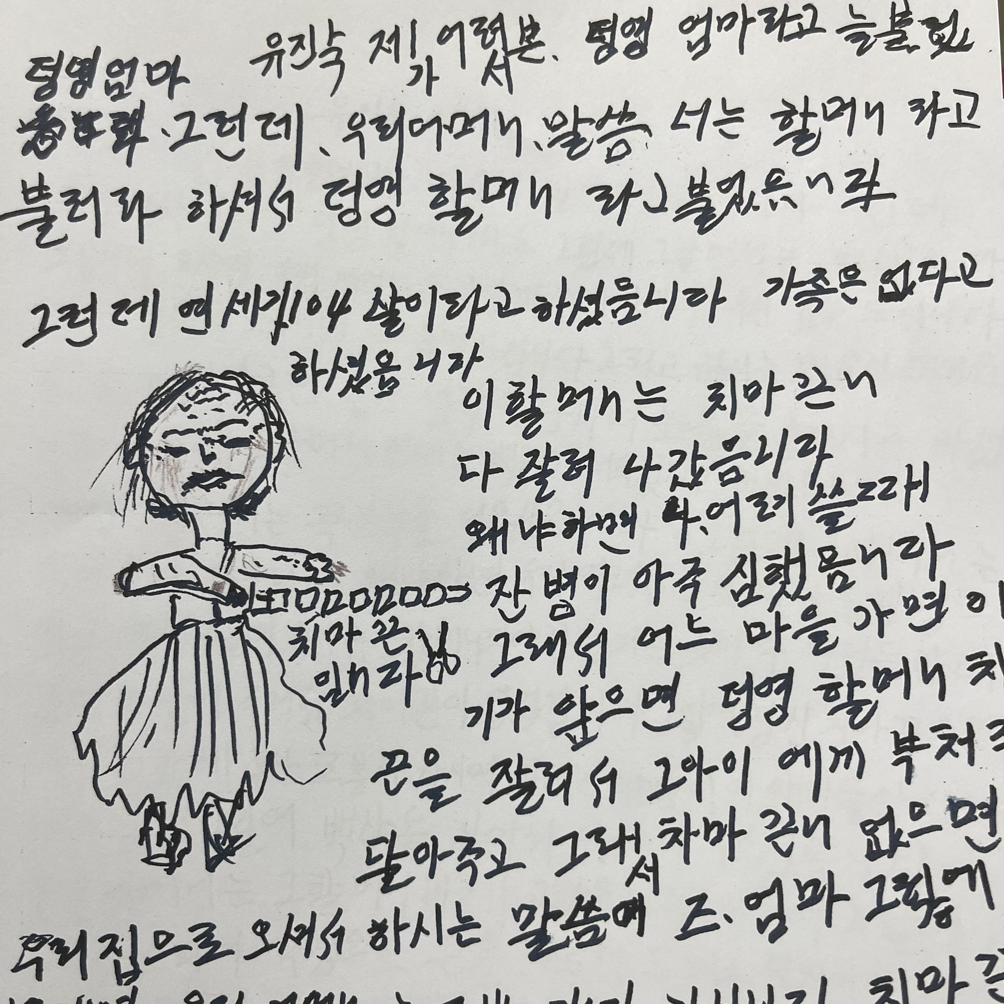 텅영엄마 유진숙 제가 어렸서본 텅영 엄마라고 늘불렀
그런데 우리어머니 말씀 서는 할머니 라고
불러라 하셔서 텅영 할머니 라고 불렀읍니다
그런데 연세가 104 살이라고 하셨읍니다 가족은 없다고
하셨읍니다
이할머니는 치마끈니
다 잘려 나갔읍니다
왜냐하면
잔병이 아주 심했읍니다
치마끈 그래서 어느 마을 가면
입니다
기가 않으면 텅영 할머니 치
끈을 잘러서 그아이 에게 부처
달아주고 그래서 차마 끈니 없으면
우리집으로 오셔서 하시는 말씀에 즈.엄마